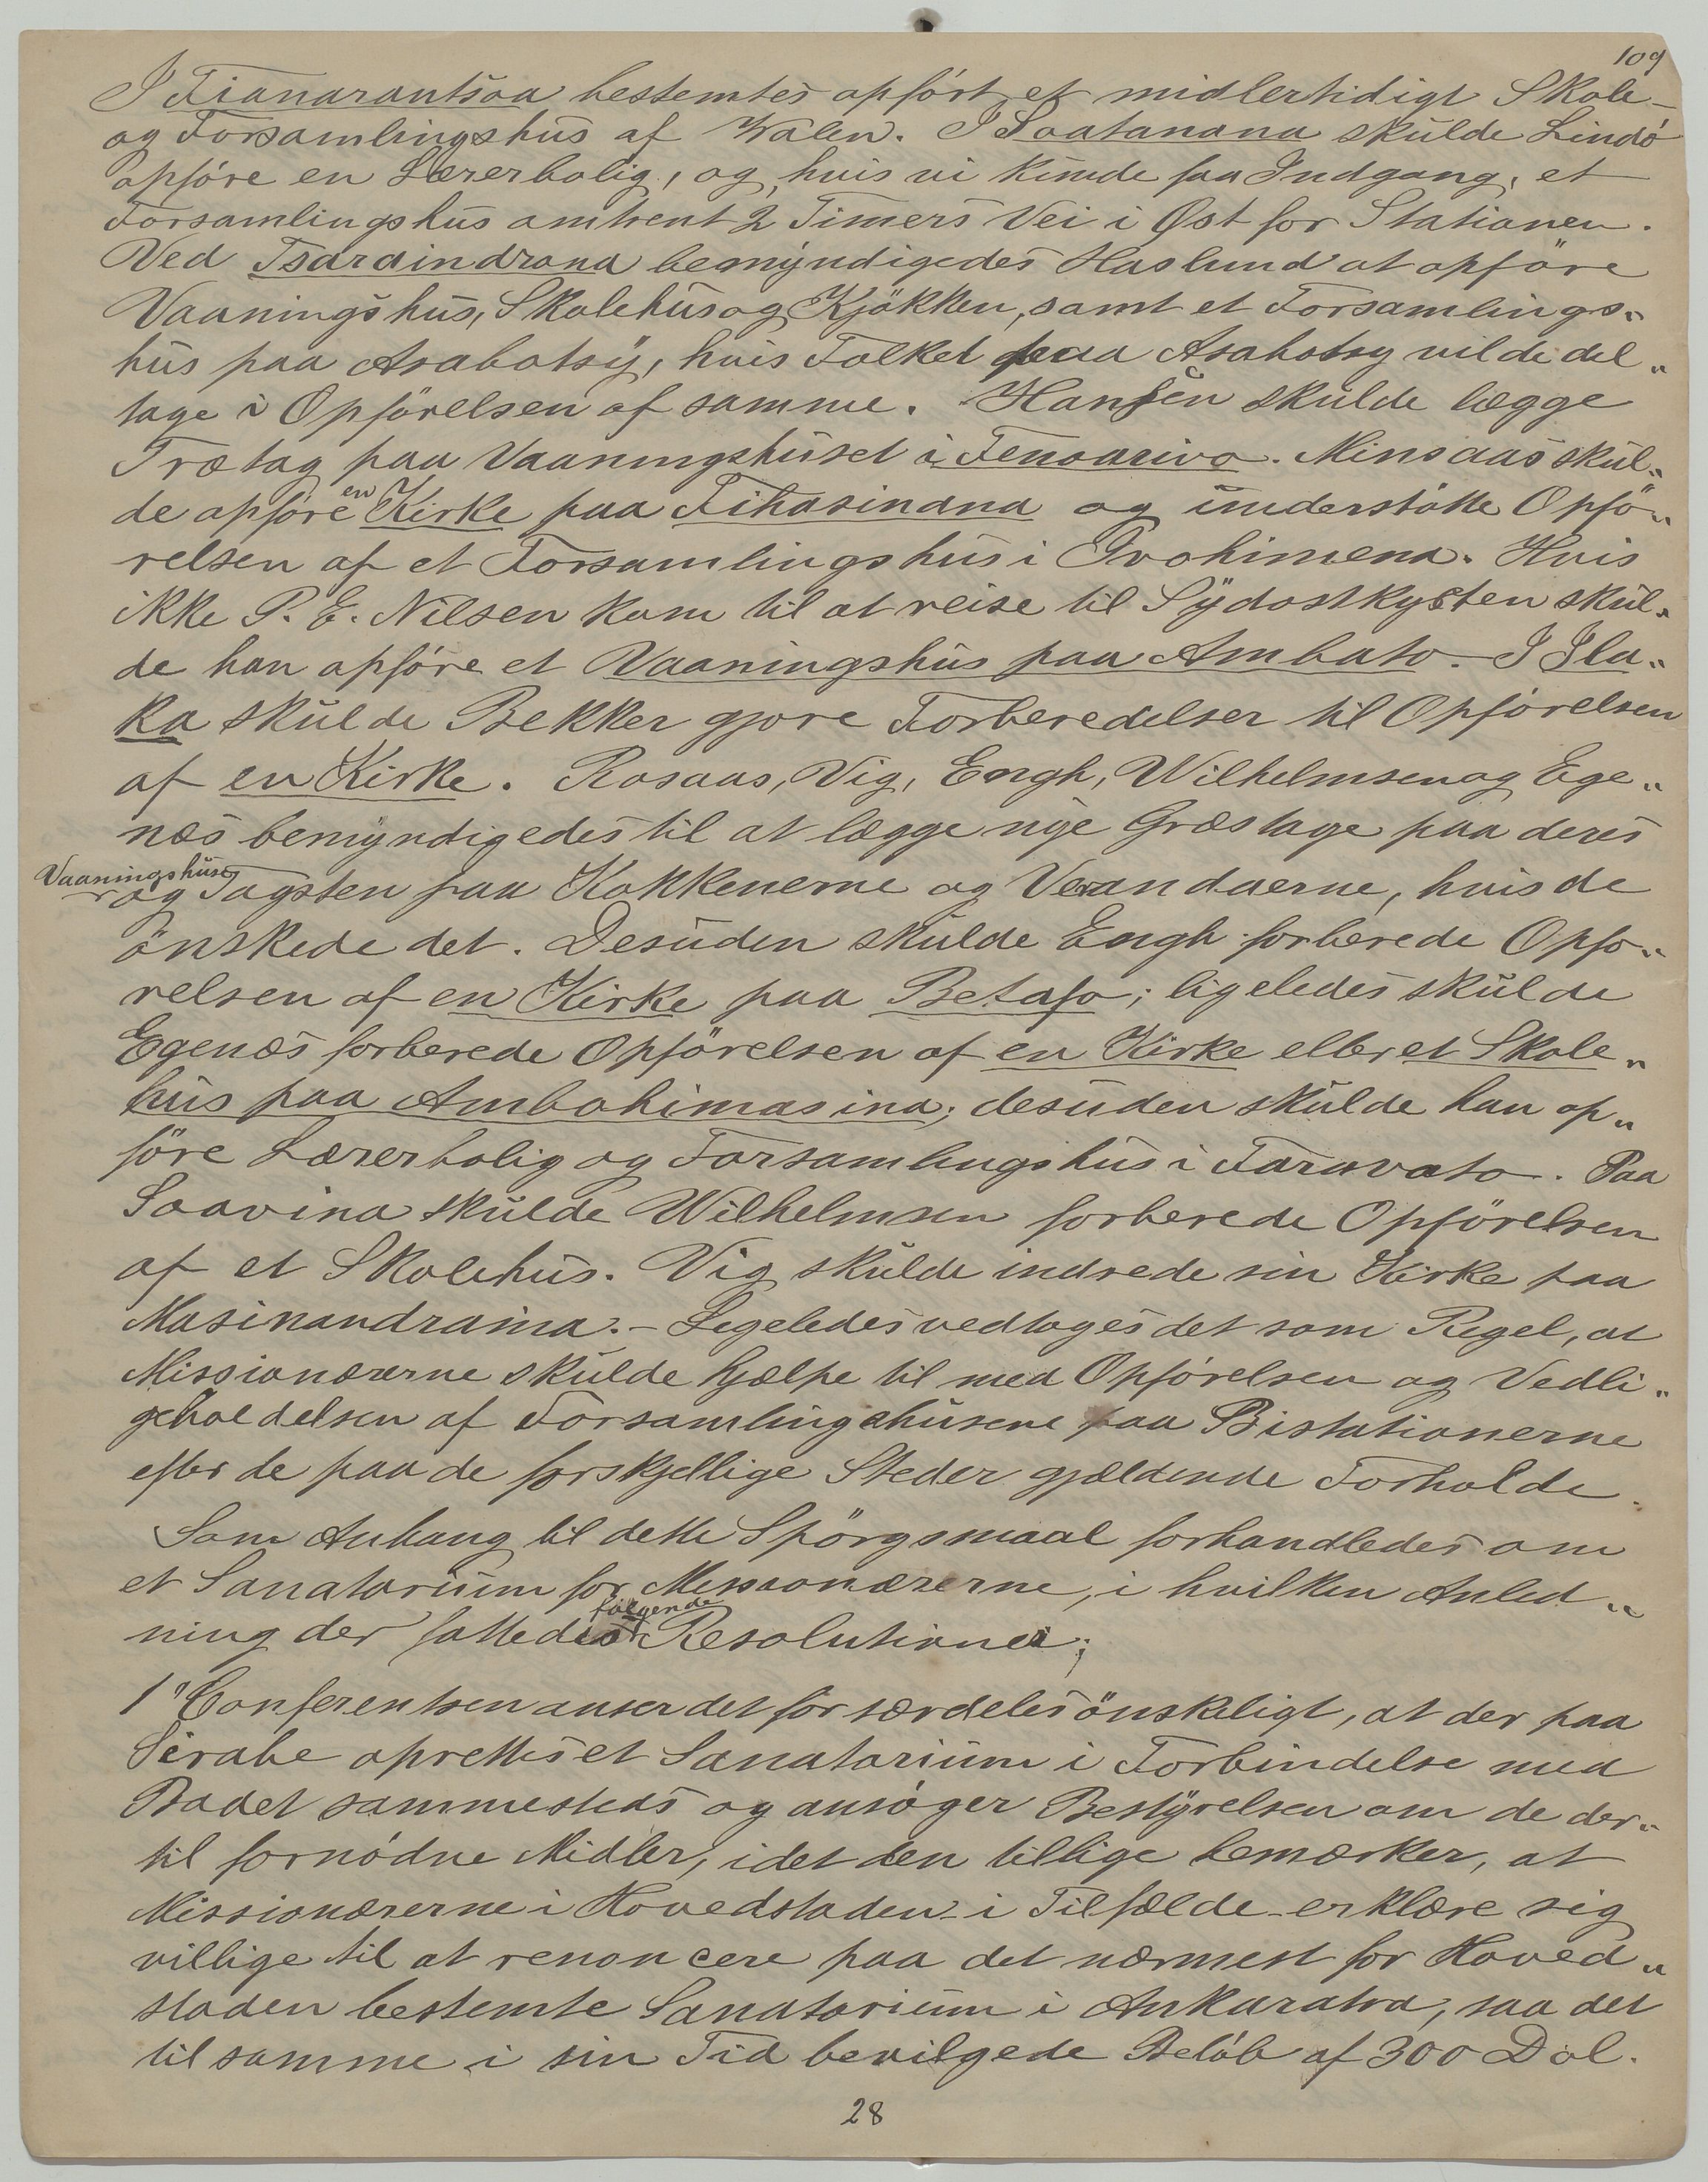 109
I Fianarantsoa bestemtes opført et midlertidigt Skole-
og Forsamlingshus af Walen. I Soatanana skulde Lindø
opføre en Lærerbolig, og, hvis vi kunde faa Indgang, et
Forsamlingshus omtrent 2 Timers Vei i Øst for Stationen.
Ved Tsaraindrana bemyndigedes Haslund at opföre
Vaaningshus, Skolehus og Kjökken, samt et Forsamlings„
hus paa Asabotsy, hvis Folket paa Asabotsy vilde del„
tage i Opförelsen af samme. Hansen skulde lægge
Trætag paa Vaaningshuset i Fenoarivo. Minsaas skul„
de opføre en Kirke paa Fihasinana og understötte Opfö„
relsen af et Forsamlingshus i Ivohimena. Hvis
ikke P. E. Nilsen kom til at reise til Sydostkysten skul„
de han opføre et Vaaningshus paa Ambato. I Ila„
ka skulde Bekker gjøre Forberedelser til Opførelsen
af en Kirke. Rosaas, Vig, Engh, Wilhelmsen og Ege„
næs bemyndigedes til at lægge nye Græstage paa deres
Vaaningshuse
og Tagsten paa Kokkenerne og Verandaerne, hvis de
önskede det. Desuden skulde Engh forberede Opfø„
relsen af en Kirke paa Betafo; ligeledes skulde
Egenæs forberede Opförelsen af en Kirke eller et Skole„
hus paa Ambohimasina; desuden skulde han op„
före Lærerbolig og Forsamlingshus i Faravato. Paa
Soavina skulde Wilhelmsen forberede Opförelsen
af et Skolehus. Vig skulde indrede sin Kirke paa
Masinandraina. - Ligeledes vedtoges det som Regel, at
Missionærerne skulde hjælpe til med Opførelsen og Vedli„
geholdelsen af Forsamlingshusene paa Bistationerne
efter de paa de forskjellige Steder gjældende Forholde.
Som Anhang til dette Spörgsmaal forhandledes om
et Sanatorium for Missionærerne, i hvilken Anled„
ning der fattedes følgende Resolutioner;
1" Conferentsen anser det for særdeles önskeligt, at der paa
Sirabe oprettes et Sanatorium i Forbindelse med
Badet sammesteds og ansøger Bestyrelsen om de der„
til fornødne Midler, idet den tillige bemærker, at
Missionærerne i Hovedstaden - i Tilfælde - erklære sig
villige til at renoncere paa det nærmest for Hoved„
staden bestemte Sanatorium i Ankaratra, saa det
til samme i sin Tid bevilgede Beløb af 300 Dol.
28